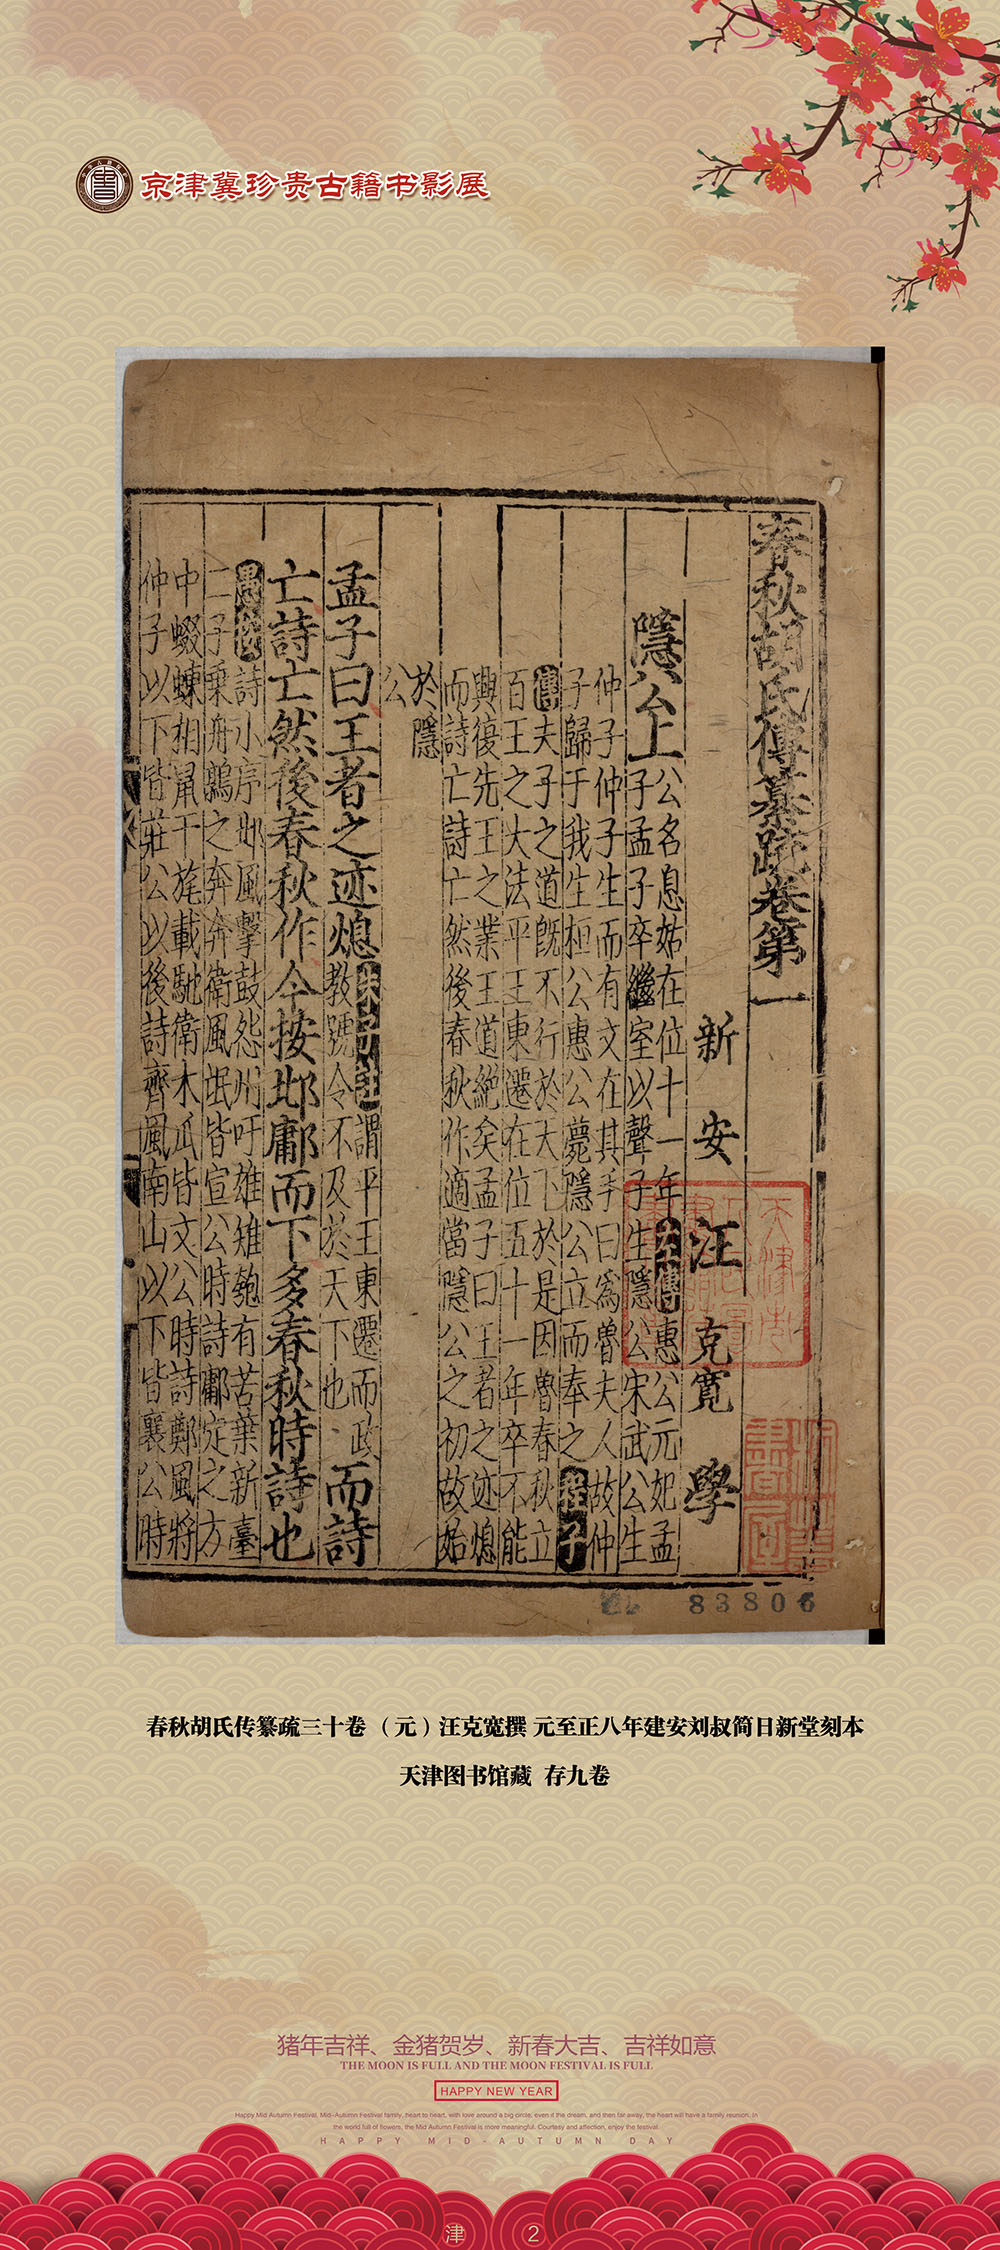 京津冀珍贵古籍书影展
春秋胡氏傳纂疏卷第一
新安汪克寬學
隱公上
公名息姑在位十一年公傳惠公元妃孟
子孟子卒繼室以聲子生隱公宋武公生
仲子仲子生而有文在其手曰為魯夫人故仲
子歸于我生桓公惠公薨隱公立而奉之程子
傳夫子之道既不行於天下於是因魯春秋立
百王之大法平王東遷在位五十一年卒不能
興復先王之業王道絶矣孟子曰王者之迹熄
而詩亡詩亡然後春秋作適當隱公之初故始
於隱
公
孟子曰王者之迹熄
謂平王東遷而政
教號令不及於天下也
而詩
亡詩亡然後春秋作今按邶鄘而下多春秋時詩也
愚按詩小序邶風擊鼓怨州吁雄雉匏有苦葉新臺
二子乘舟鶉之奔奔衛風氓皆宣公時詩鄘定之方
中蝃蝀相鼠干旄載馳衛木瓜皆文公時詩鄭風將
仲子以下皆莊公以後詩齊風南山以下皆襄公時
83806
春秋胡氏传纂疏三十卷 （元）汪克宽撰 元至正八年建安刘叔简日新堂刻本
天津图书馆藏 存九卷
猪年吉祥、金猪贺岁、新春大吉、吉祥如意
THE MOON IS FULL AND THE MOON FESTIVAL IS FULL
HAPPY NEW YEAR
Happy Mid Autumn Festival, Mid-Autumn Festival family, heart to heart, with love around a big circle, even if the dream, and then far away, the heart will have a family reunion. In
the world full of flowers, the Mid Autumn Festival is more meaningful. Courtesy and affection, enjoy the festival.
HAPPY MID-AUTUMN DAY
津 2